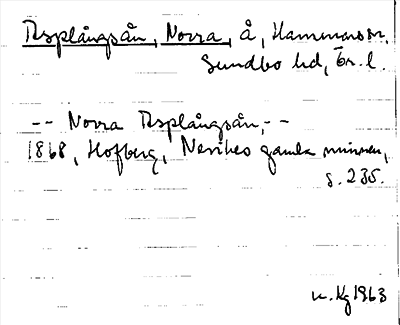 Asplångsån, Norra, å, Hammars sn,
Sundbo hd, Ör. l.
-- Norra Asplångsån, --
1868, Hofberg, Nerikes gamla minnen,
s. 235.
u. Kg 1963